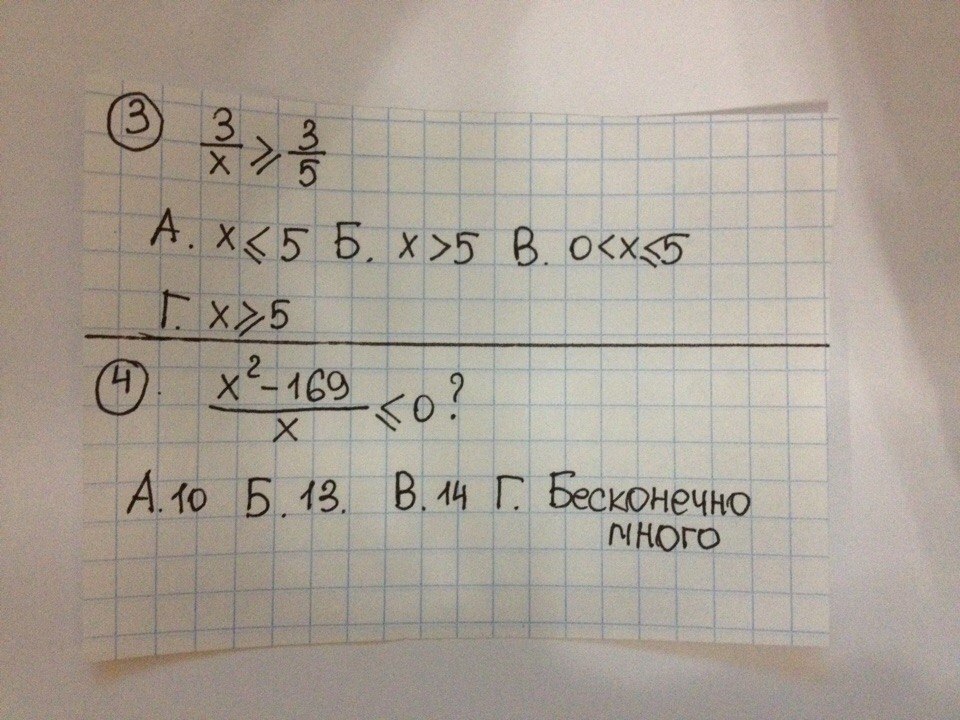 3 3/x ⩾ 3/5
А. x ⩽ 5 Б. x > 5 В. 0 < x ⩽ 5
Г. x ⩾ 5
4. x²-169/x ⩽ 0?
А. 10 Б. 13. В. 14 Г. Бесконечно
много